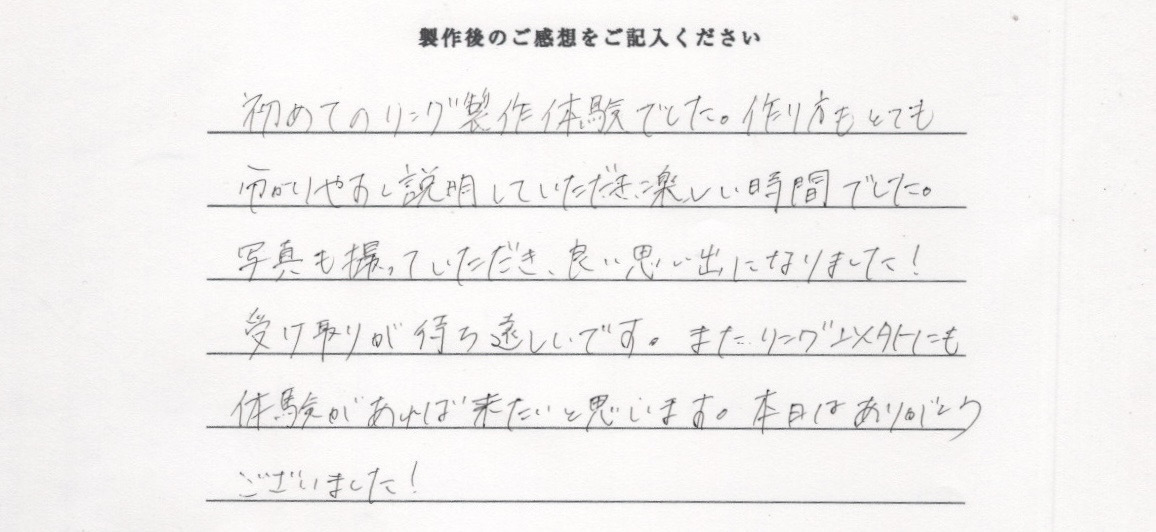 製作後のご感想をご記入ください
初めてのリング製作体験でした。作り方もとても
分かりやすし説明していただき、楽しい時間でした。
写真も撮っていただき、良い思い出になりました！
受け取りが待ち遠しいです。またリング以外にも
体験があれば来たいと思います。本日はありがとう
ございました！